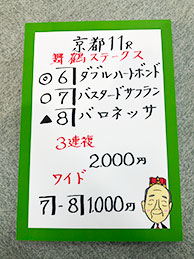 京都11R
舞鶴ステークス
◎6 ダブルハートボンド
○7 バスタードサフラン
▲8 バロネッサ
3連複
2,000円
ワイド
7-8 1,000円